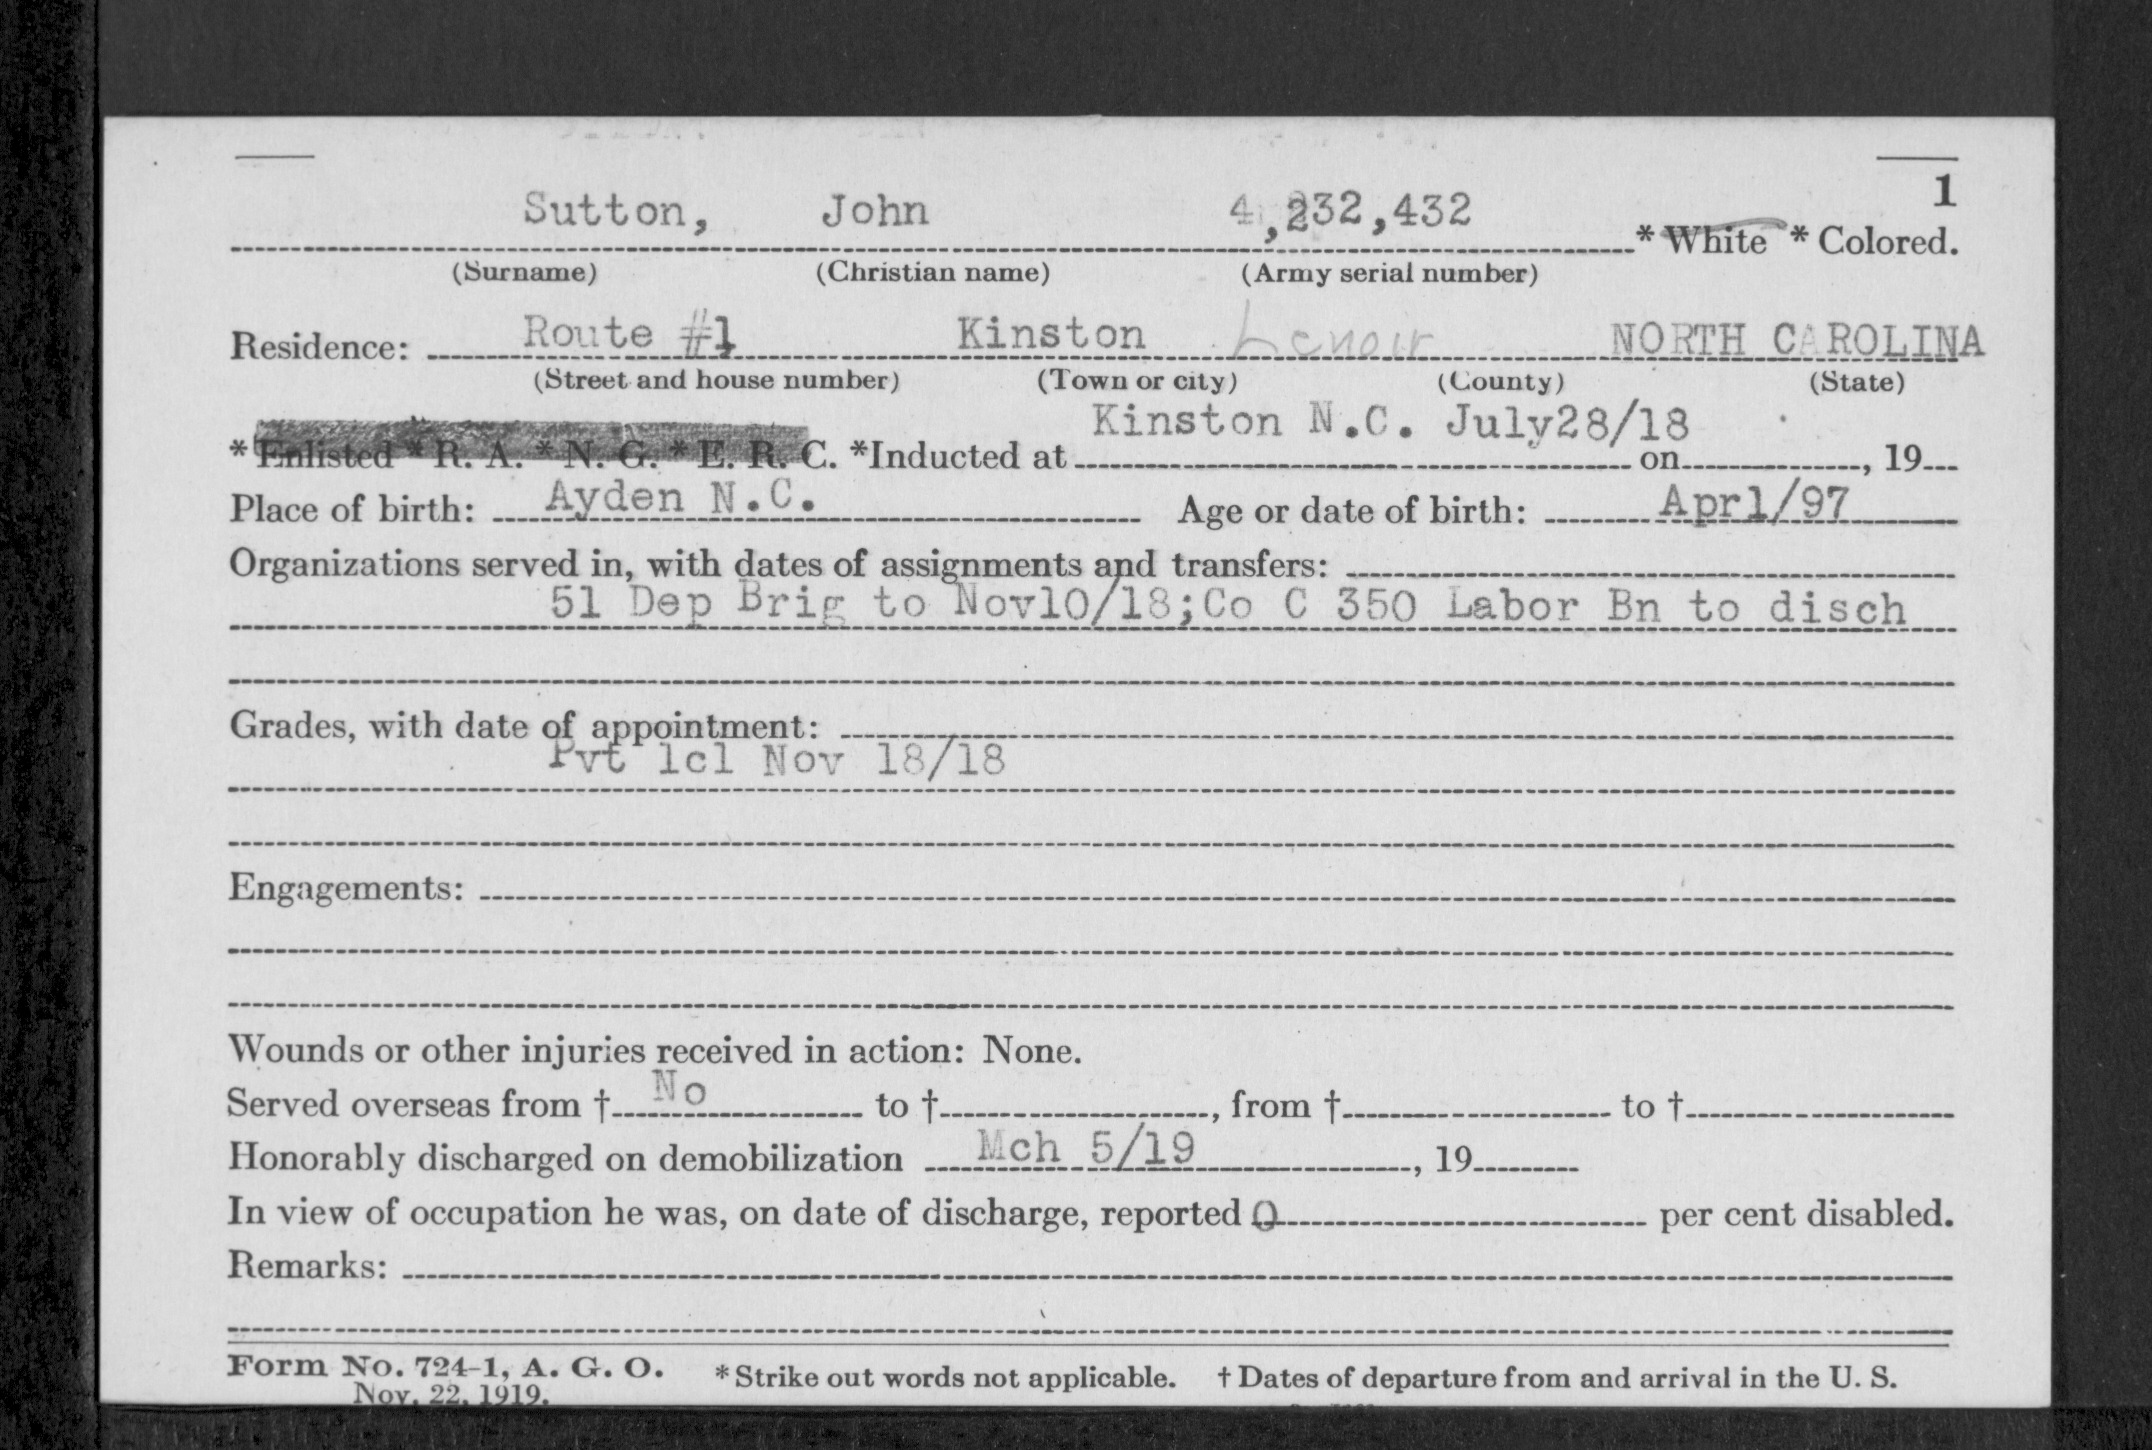 1
Sutton, John 4,232,432 * White * Colored.
(Surname) (Christian name) (Army serial number)
Residence: Route #1 Kinston Lenoir NORTH CAROLINA
(Street and house number) (Town or city) (County) (State)
* Enlisted * R. A. * N. G. * E. R. C. *Inducted at Kinston N.C. July28/18 on , 19
Place of birth: Ayden N.C. Age or date of birth: Apr1/97
Organizations served in, with dates of assignments and transfers:
51 Dep Brig to Nov10/18;Co C 350 Labor Bn to disch
Grades, with date of appointment:
Pvt 1cl Nov 18/18
Engagements:
Wounds or other injuries received in action: None.
Served overseas from † No to † , from † to †
Honorably discharged on demobilization Mch 5/19 , 19
In view of occupation he was, on date of discharge, reported 0 per cent disabled.
Remarks:
Form No. 724-1, A. G. O. * Strike out words not applicable. † Dates of departure from and arrival in the U. S.
Nov. 22, 1919.